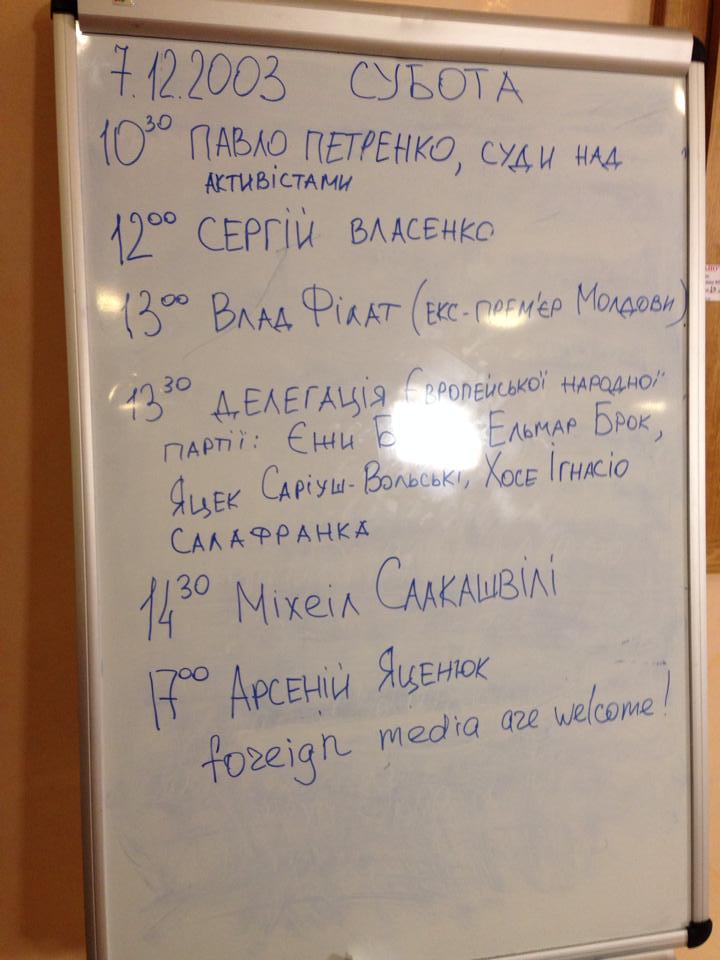 7.12.2003 СУБОТА
10³⁰ ПАВЛО ПЕТРЕНКО, СУДИ НАД
АКТИВІСТАМИ
12⁰⁰ СЕРГІЙ ВЛАСЕНКО
13⁰⁰ ВЛАД ФІЛАТ (ЕКС-ПРЕМ'ЄР МОЛДОВИ)
13³⁰ ДЕЛЕГАЦІЯ ЄВРОПЕЙСЬКОЇ НАРОДНОЇ
ПАРТІЇ: ЄЖИ ЕЛЬМАР БРОК,
ЯЦЕК САРІУШ-ВОЛЬСЬКІ, ХОСЕ ІГНАСІО
САЛАФРАНКА
14³⁰ МІХЕІЛ СААКАШВІЛІ
17⁰⁰ АРСЕНІЙ ЯЦЕНЮК
foreign media are welcome!